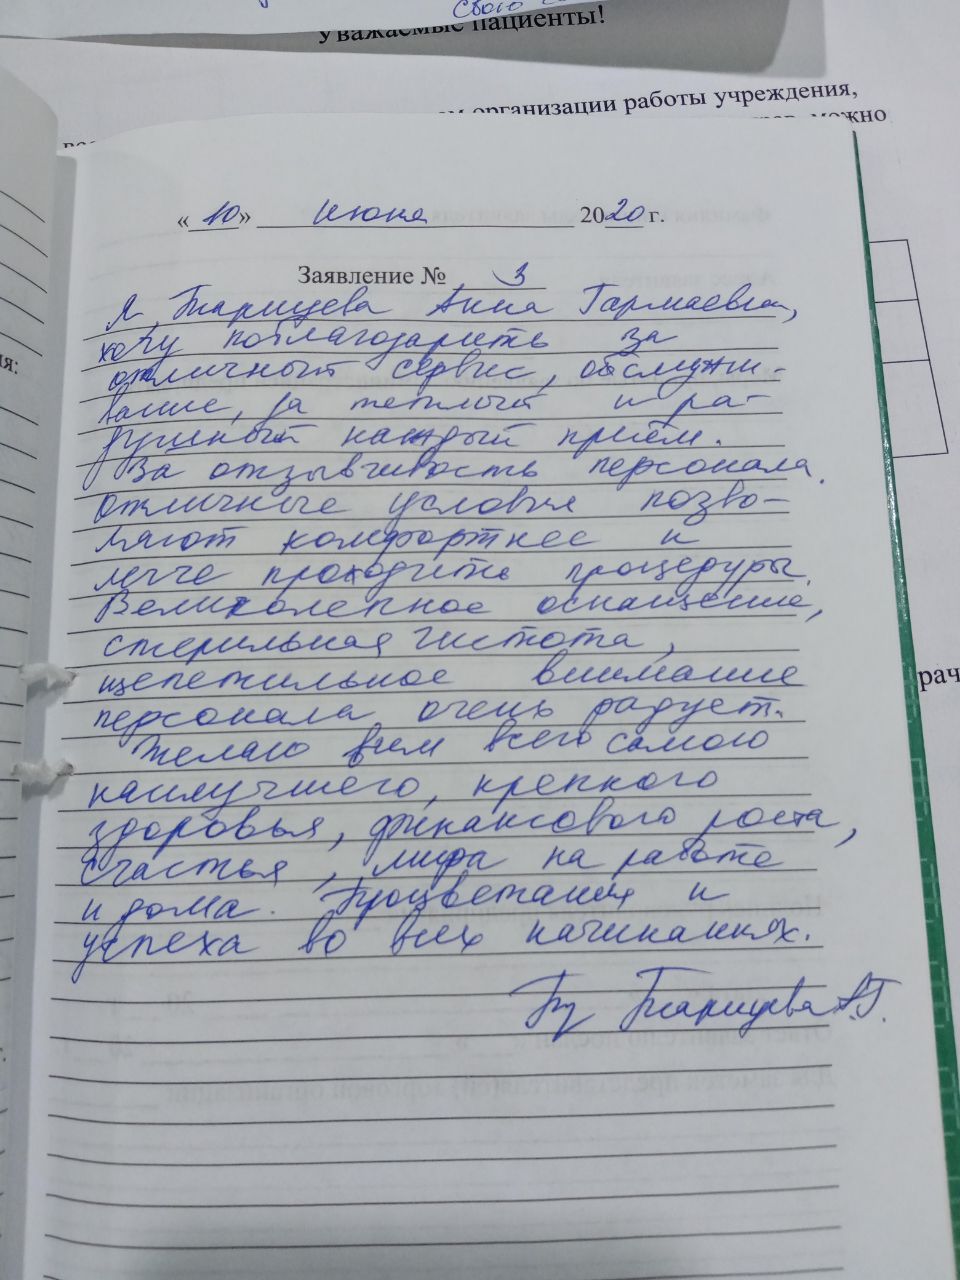 Свого
Уважаемые пациенты!
организации работы учреждения,
можно
«10» Июня 2020 г.
Заявление № 3
Я, Анна Гармаевна,
хочу поблагодарить за
отличный сервис, обслужи-
вание, за теплый и ра-
душный каждый приём.
За отзывчивость персонала.
Отличные условия позво-
ляют комфортнее и
легче проходить процедуры.
Великолепное оснащение,
стерильная чистота,
щепетильное внимание
персонала очень радует.
Желаю всем всего самого
наилучшего, крепкого
здоровья, финансового роста,
счастья, мира на работе
и дома. Процветания и
успеха во всех начинаниях.
А.Г.
рач